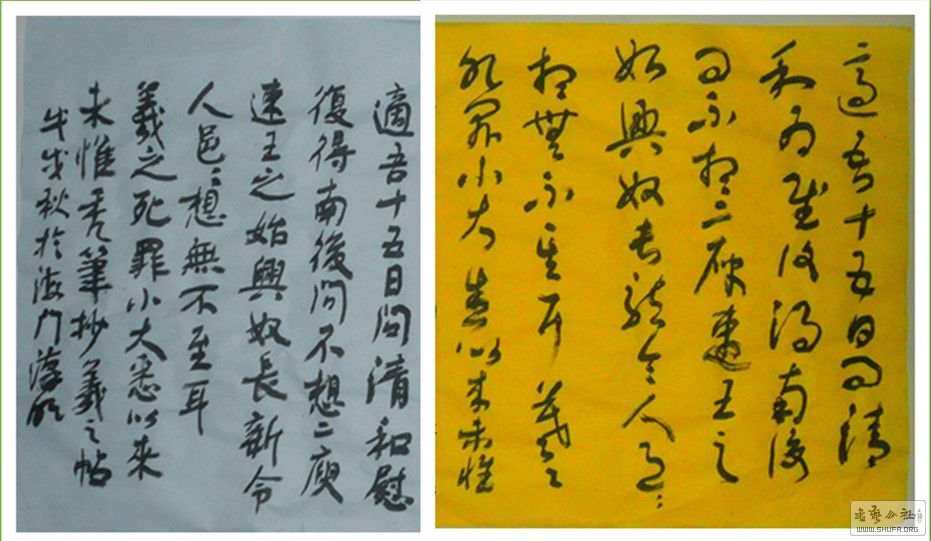 適吾十五日問清和慰
復得南後問不想二庾
速王之始興奴長新令
人邑〻想無不至耳
羲之死罪小大悉以來
未惟禿筆抄羲之帖
戊戌秋於海門
適吾十五日問清
和為慰復得南後
問不想二庾速王之
始興奴長新令人邑〻
想無不至耳羲之
死罪小大悉以來未惟
書藝公社
WWW.SHUFA.ORG